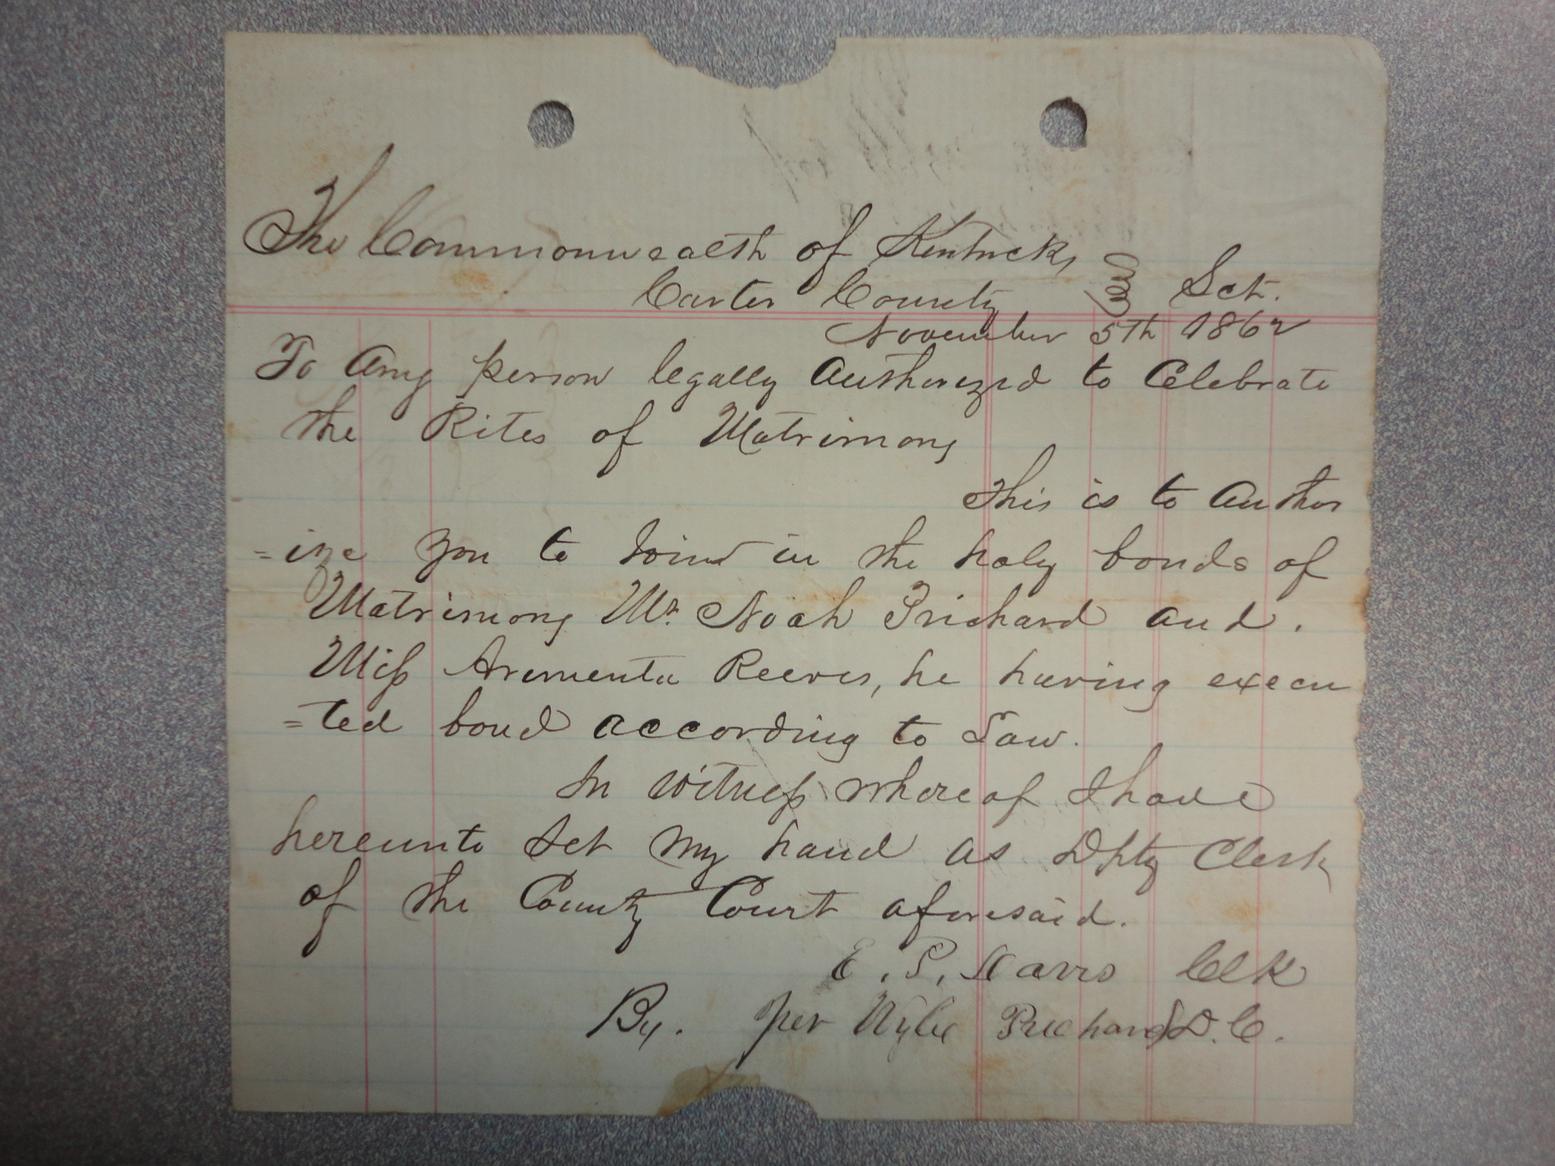 The Commonwealth of Kentucky
Carter County Sct.
November 5th 1862
To Any person legally Authorized to Celebrate
the Rites of Matrimony
This is to Author
=ize you to Join in the holy bonds of
Matrimony Mr. Noah Prichard and.
Miss Arementa Reeves, he having execu
=ted bond according to Law.
In witness whereof I have
hereunto Set My hand as Dpty Clerk
of the County Court aforesaid.
E. P. Davis Clk
By. per Wylie Prichard D.C.